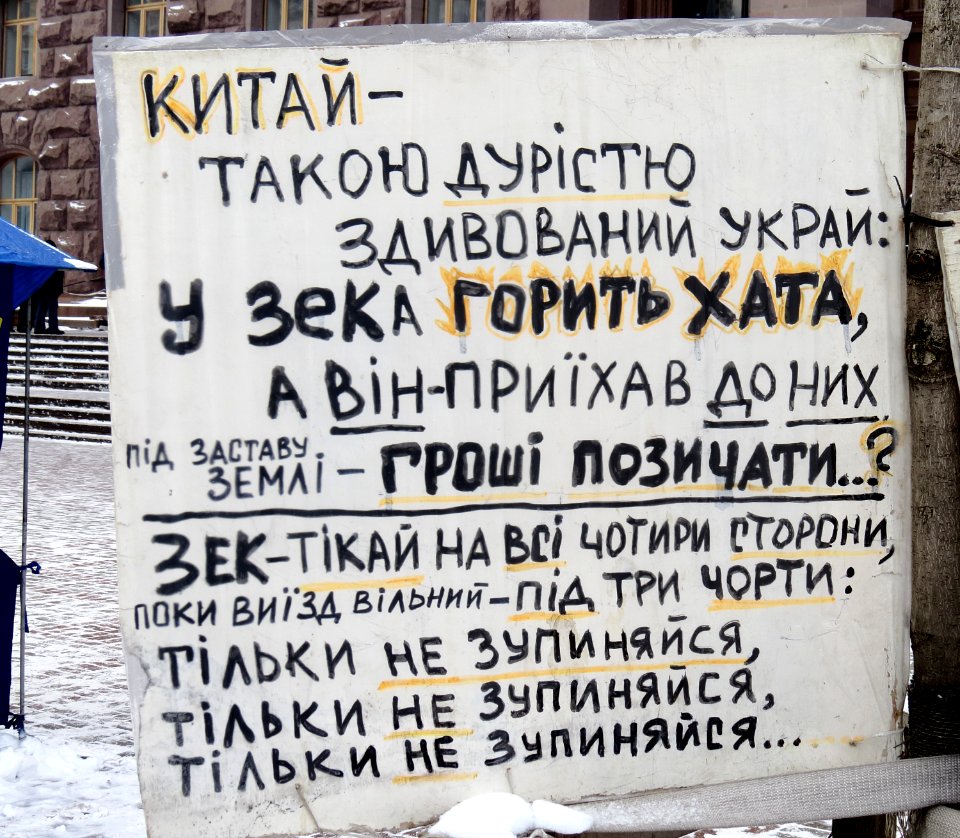 КИТАЙ–
ТАКОЮ ДУРІСТЮ
ЗДИВОВАНИЙ УКРАЙ:
У ЗЕКА ГОРИТЬ ХАТА,
А ВІН-ПРИЇХАВ ДО НИХ
ПІД ЗАСТАВУ
ЗЕМЛІ – ГРОШІ ПОЗИЧАТИ...?
ЗЕК-ТІКАЙ НА ВСІ ЧОТИРИ СТОРОНИ,
ПОКИ ВИЇЗД ВІЛЬНИЙ–ПІД ТРИ ЧОРТИ:
ТІЛЬКИ НЕ ЗУПИНЯЙСЯ,
ТІЛЬКИ НЕ ЗУПИНЯЙСЯ,
ТІЛЬКИ НЕ ЗУПИНЯЙСЯ...